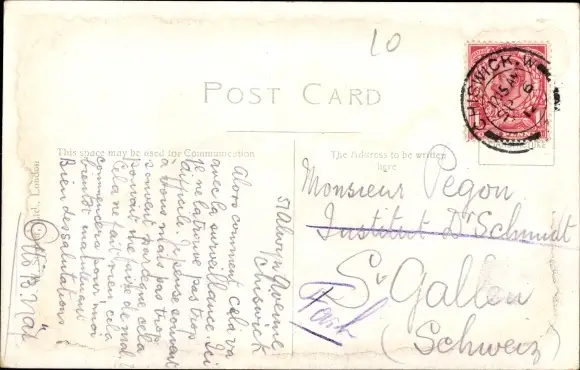 10
POST CARD
CHISWICK. W.
12.15 AM
PENNY
This space may be used for Communication
The Address to be written
here
London
5 Alwyn Avenue
Chiswick
Alors comment cela va
avec la surveillance. Ici
je ne la trouve pas trop
difficile. Je pense souvent
à vous mais pas trop
souvent parceque cela
pourrait me faire de mal.
Cela ne fait rien, cela
commencera pour moi
bientôt maintenant
Bien des salutations
Otto B.
Monsieur Pegon
Institut Dr Schmidt
St Gallen
(Schweiz)